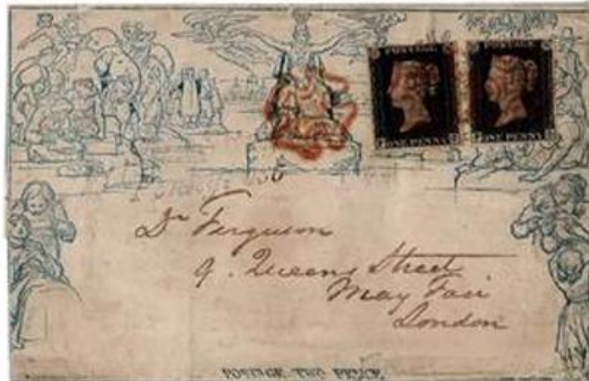 POSTAGE
ONE PENNY
POSTAGE
ONE PENNY
Dr Ferguson
9. Queens Street
May Fair
London
POSTAGE TWO PENCE